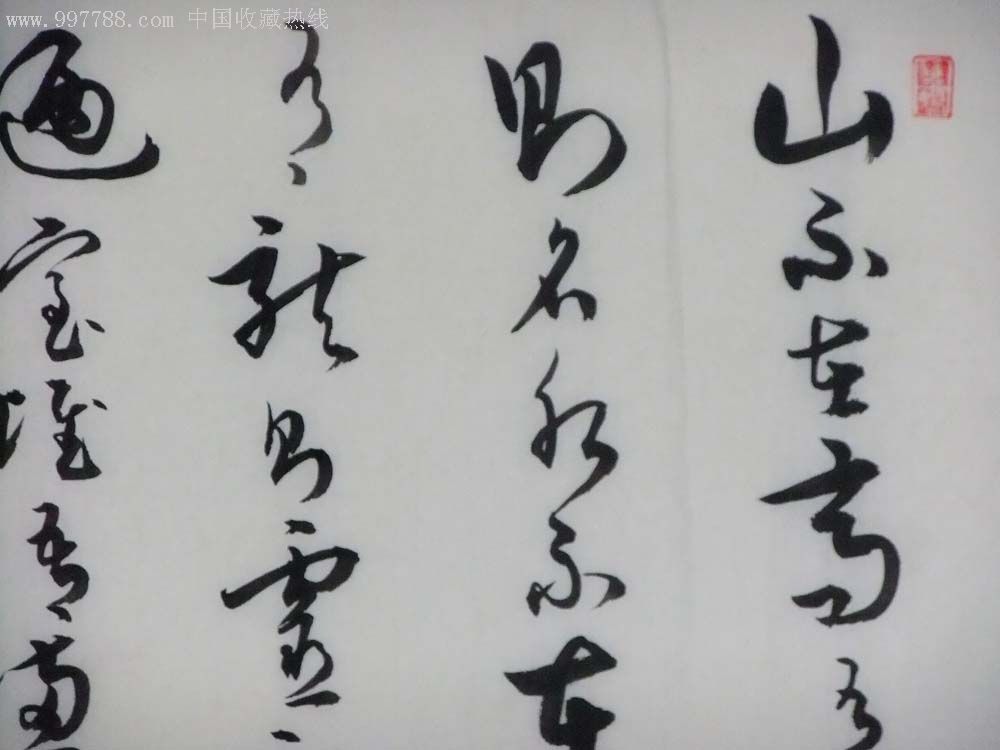 www.997788.com 中国收藏热线
山不在高有
则名水不在
有龍则靈
室惟吾